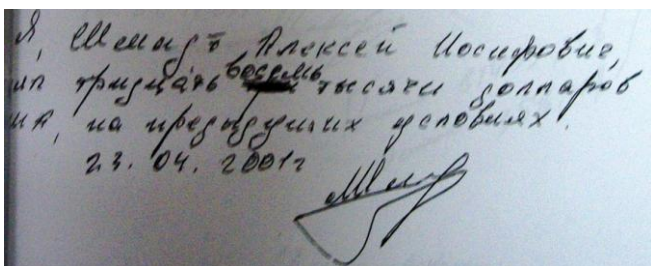 Я, Шмидт Алексей Иосифович,
тридцать восемь тысячи долларов
на предыдущих условиях.
23. 04. 2001г